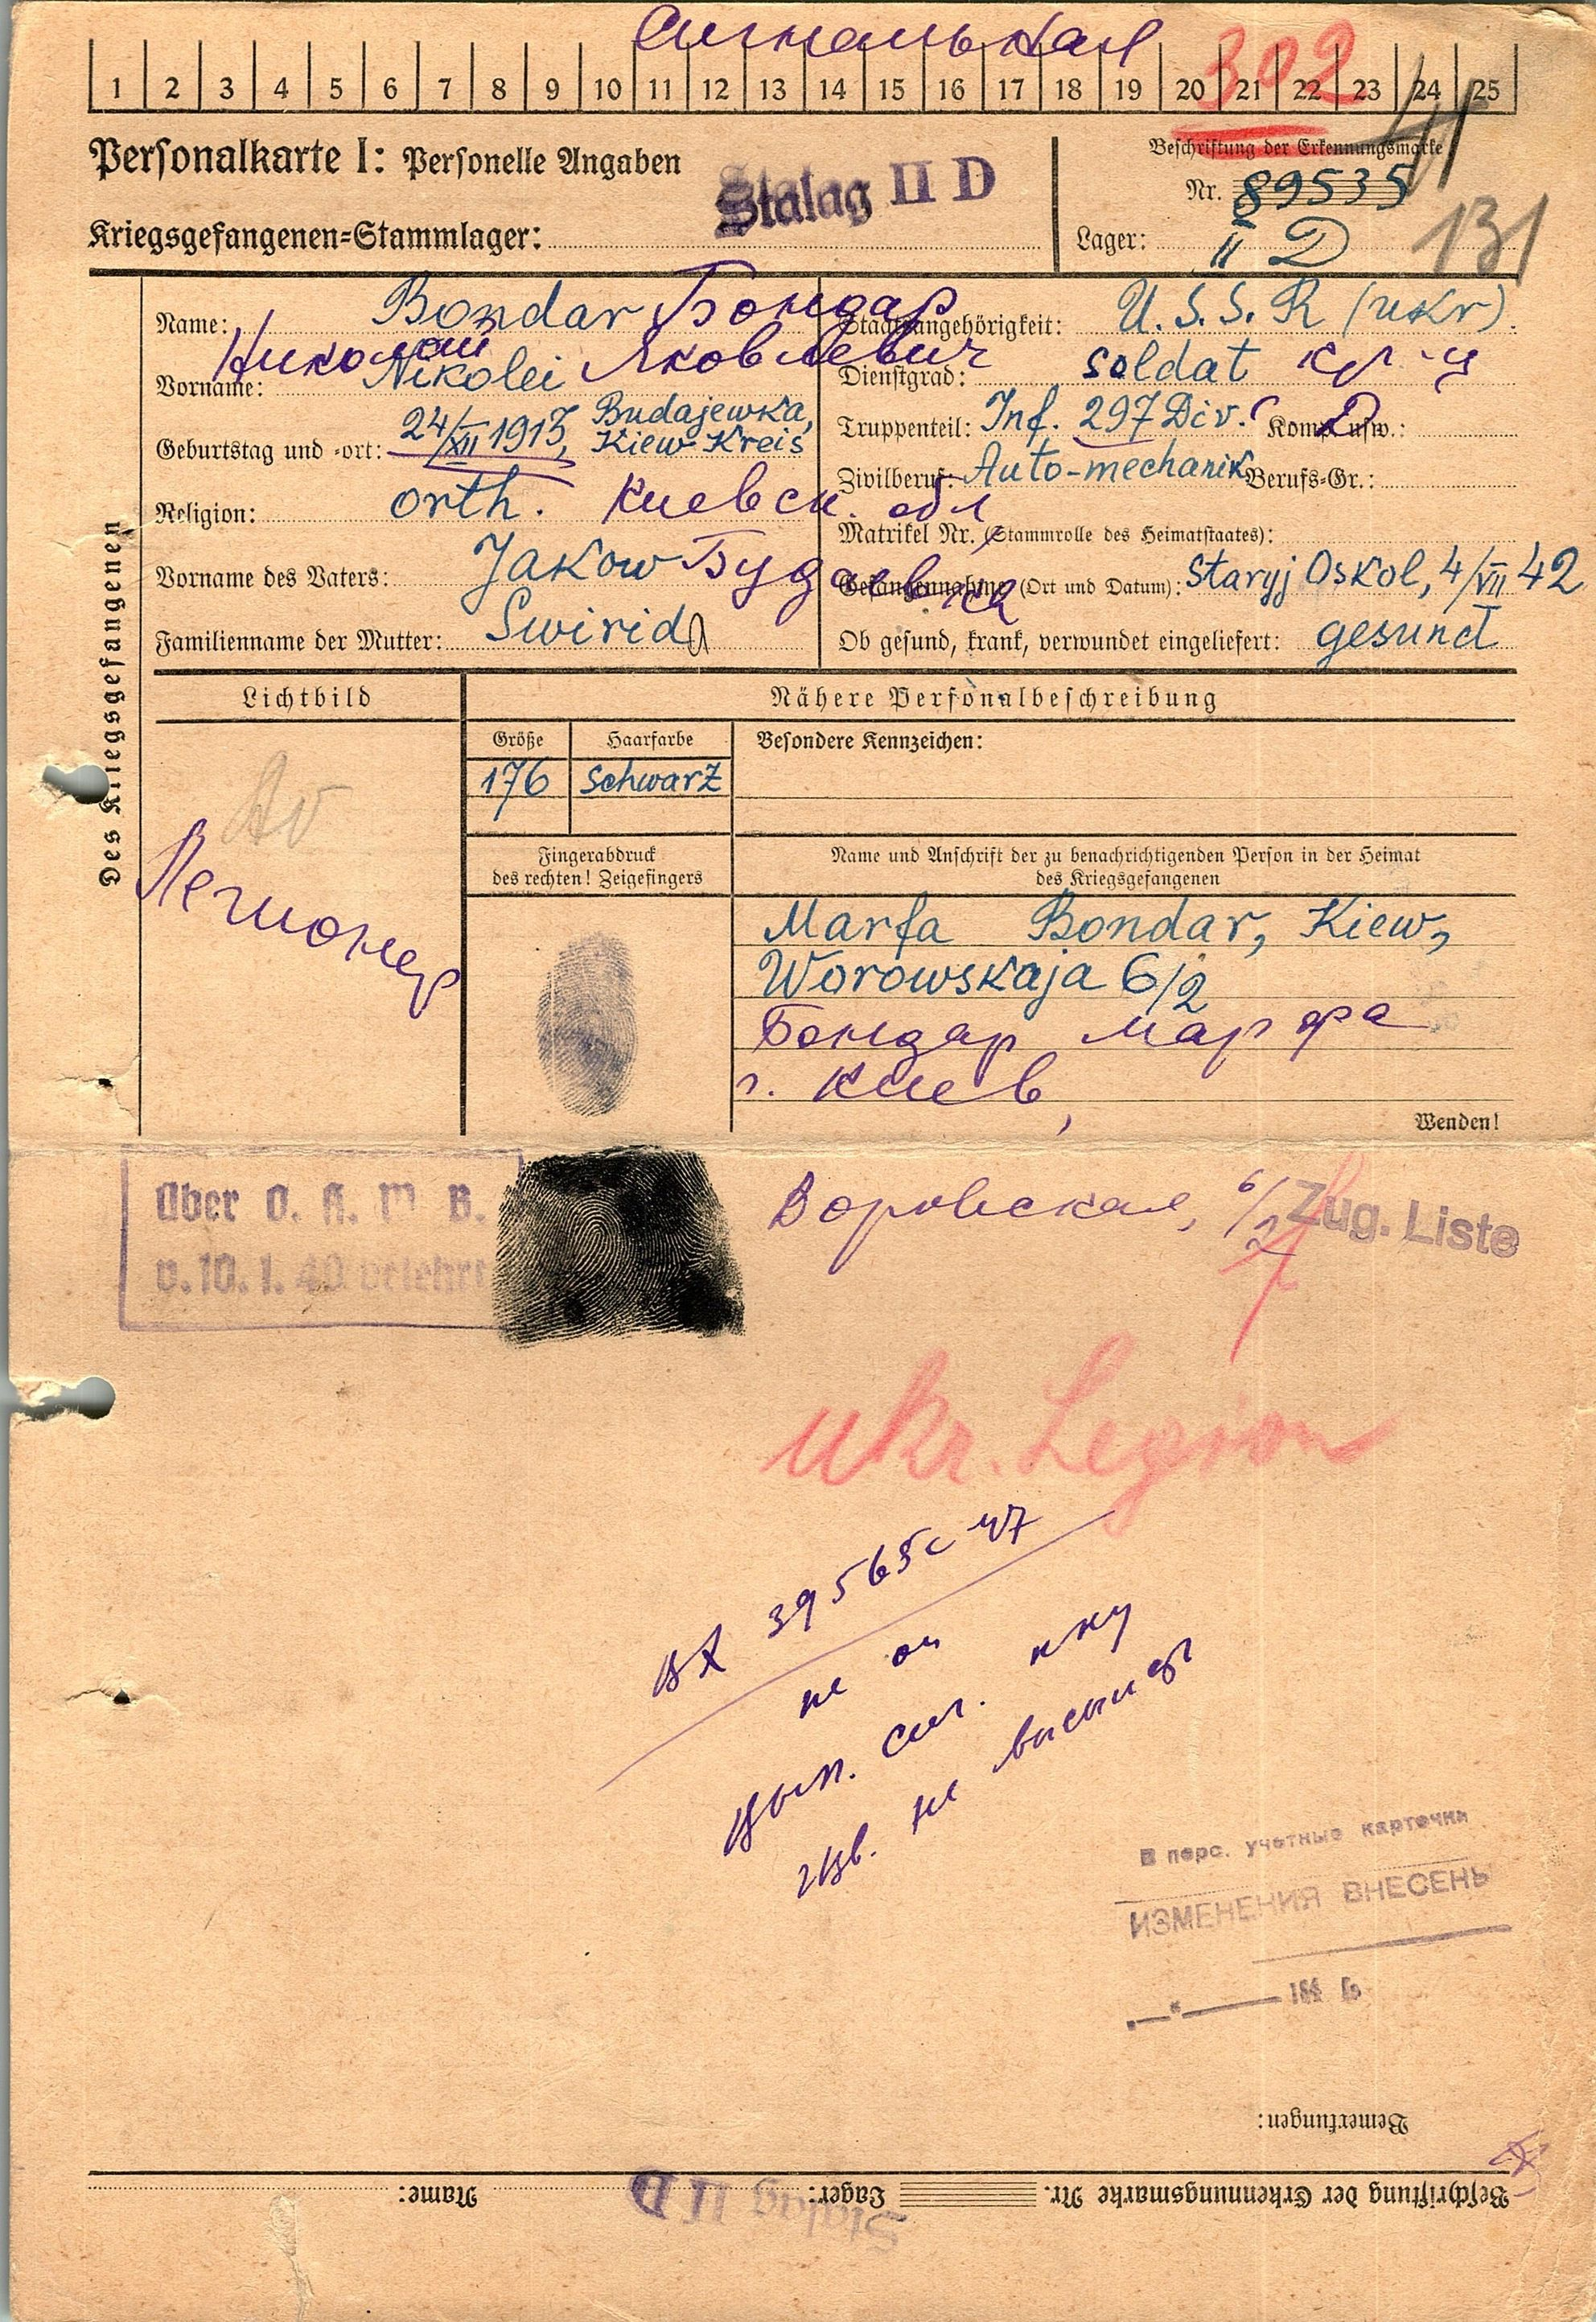 Сигнальная
302
1 2 3 4 5 6 7 8 9 10 11 12 13 14 15 16 17 18 19 20 21 22 23 24 25
Personalkarte I: Personelle Angaben
Stalag II D
Kriegsgefangenen-Stammlager:
Beschriftung der Erkennungsmarke
Nr. 89535
Lager: II D
131
Des Kriegsgefangenen
Name: Bondar Бондар
Николай Яковлевич
Vorname: Nikolei
Geburtstag und -ort: 24/XII 1913, Budajewka, Kiew-Kreis
Religion: orth. Киевск. обл
Vorname des Vaters: Jakow
Familienname der Mutter: Swirid
Staatsangehörigkeit: U.S.S.R (ukr).
Dienstgrad: soldat кр-ц
Truppenteil: Inf. 297 Div. Komp. usw.:
Zivilberuf: Auto-mechanik Berufs-Gr.:
Matrikel Nr. (Stammrolle des Heimatstaates):
Gefangennahme (Ort und Datum): Staryj Oskol, 4/VII 42
Ob gesund, krank, verwundet eingeliefert: gesund
Lichtbild
Легионер
Nähere Personalbeschreibung
Größe Haarfarbe Besondere Kennzeichen:
176 schwarz
Fingerabdruck
des rechten! Zeigefingers
Name und Anschrift der zu benachrichtigenden Person in der Heimat
des Kriegsgefangenen
Marfa Bondar, Kiew,
Worowskaja 6/2
Бондар Марфа
г. Киев,
Wenden!
über O. K. W. B.
v. 10. 1. 40 belehrt
Воровская, 6/2
Zug. Liste
ukr. Legion
вх 39565с 47
не он
вып. сиг.
изв. не высыл
В перс. учетные карточки
ИЗМЕНЕНИЯ ВНЕСЕНЫ
Bemerkungen:
Beschriftung der Erkennungsmarke Nr.
Lager: Stalag II D
Name: